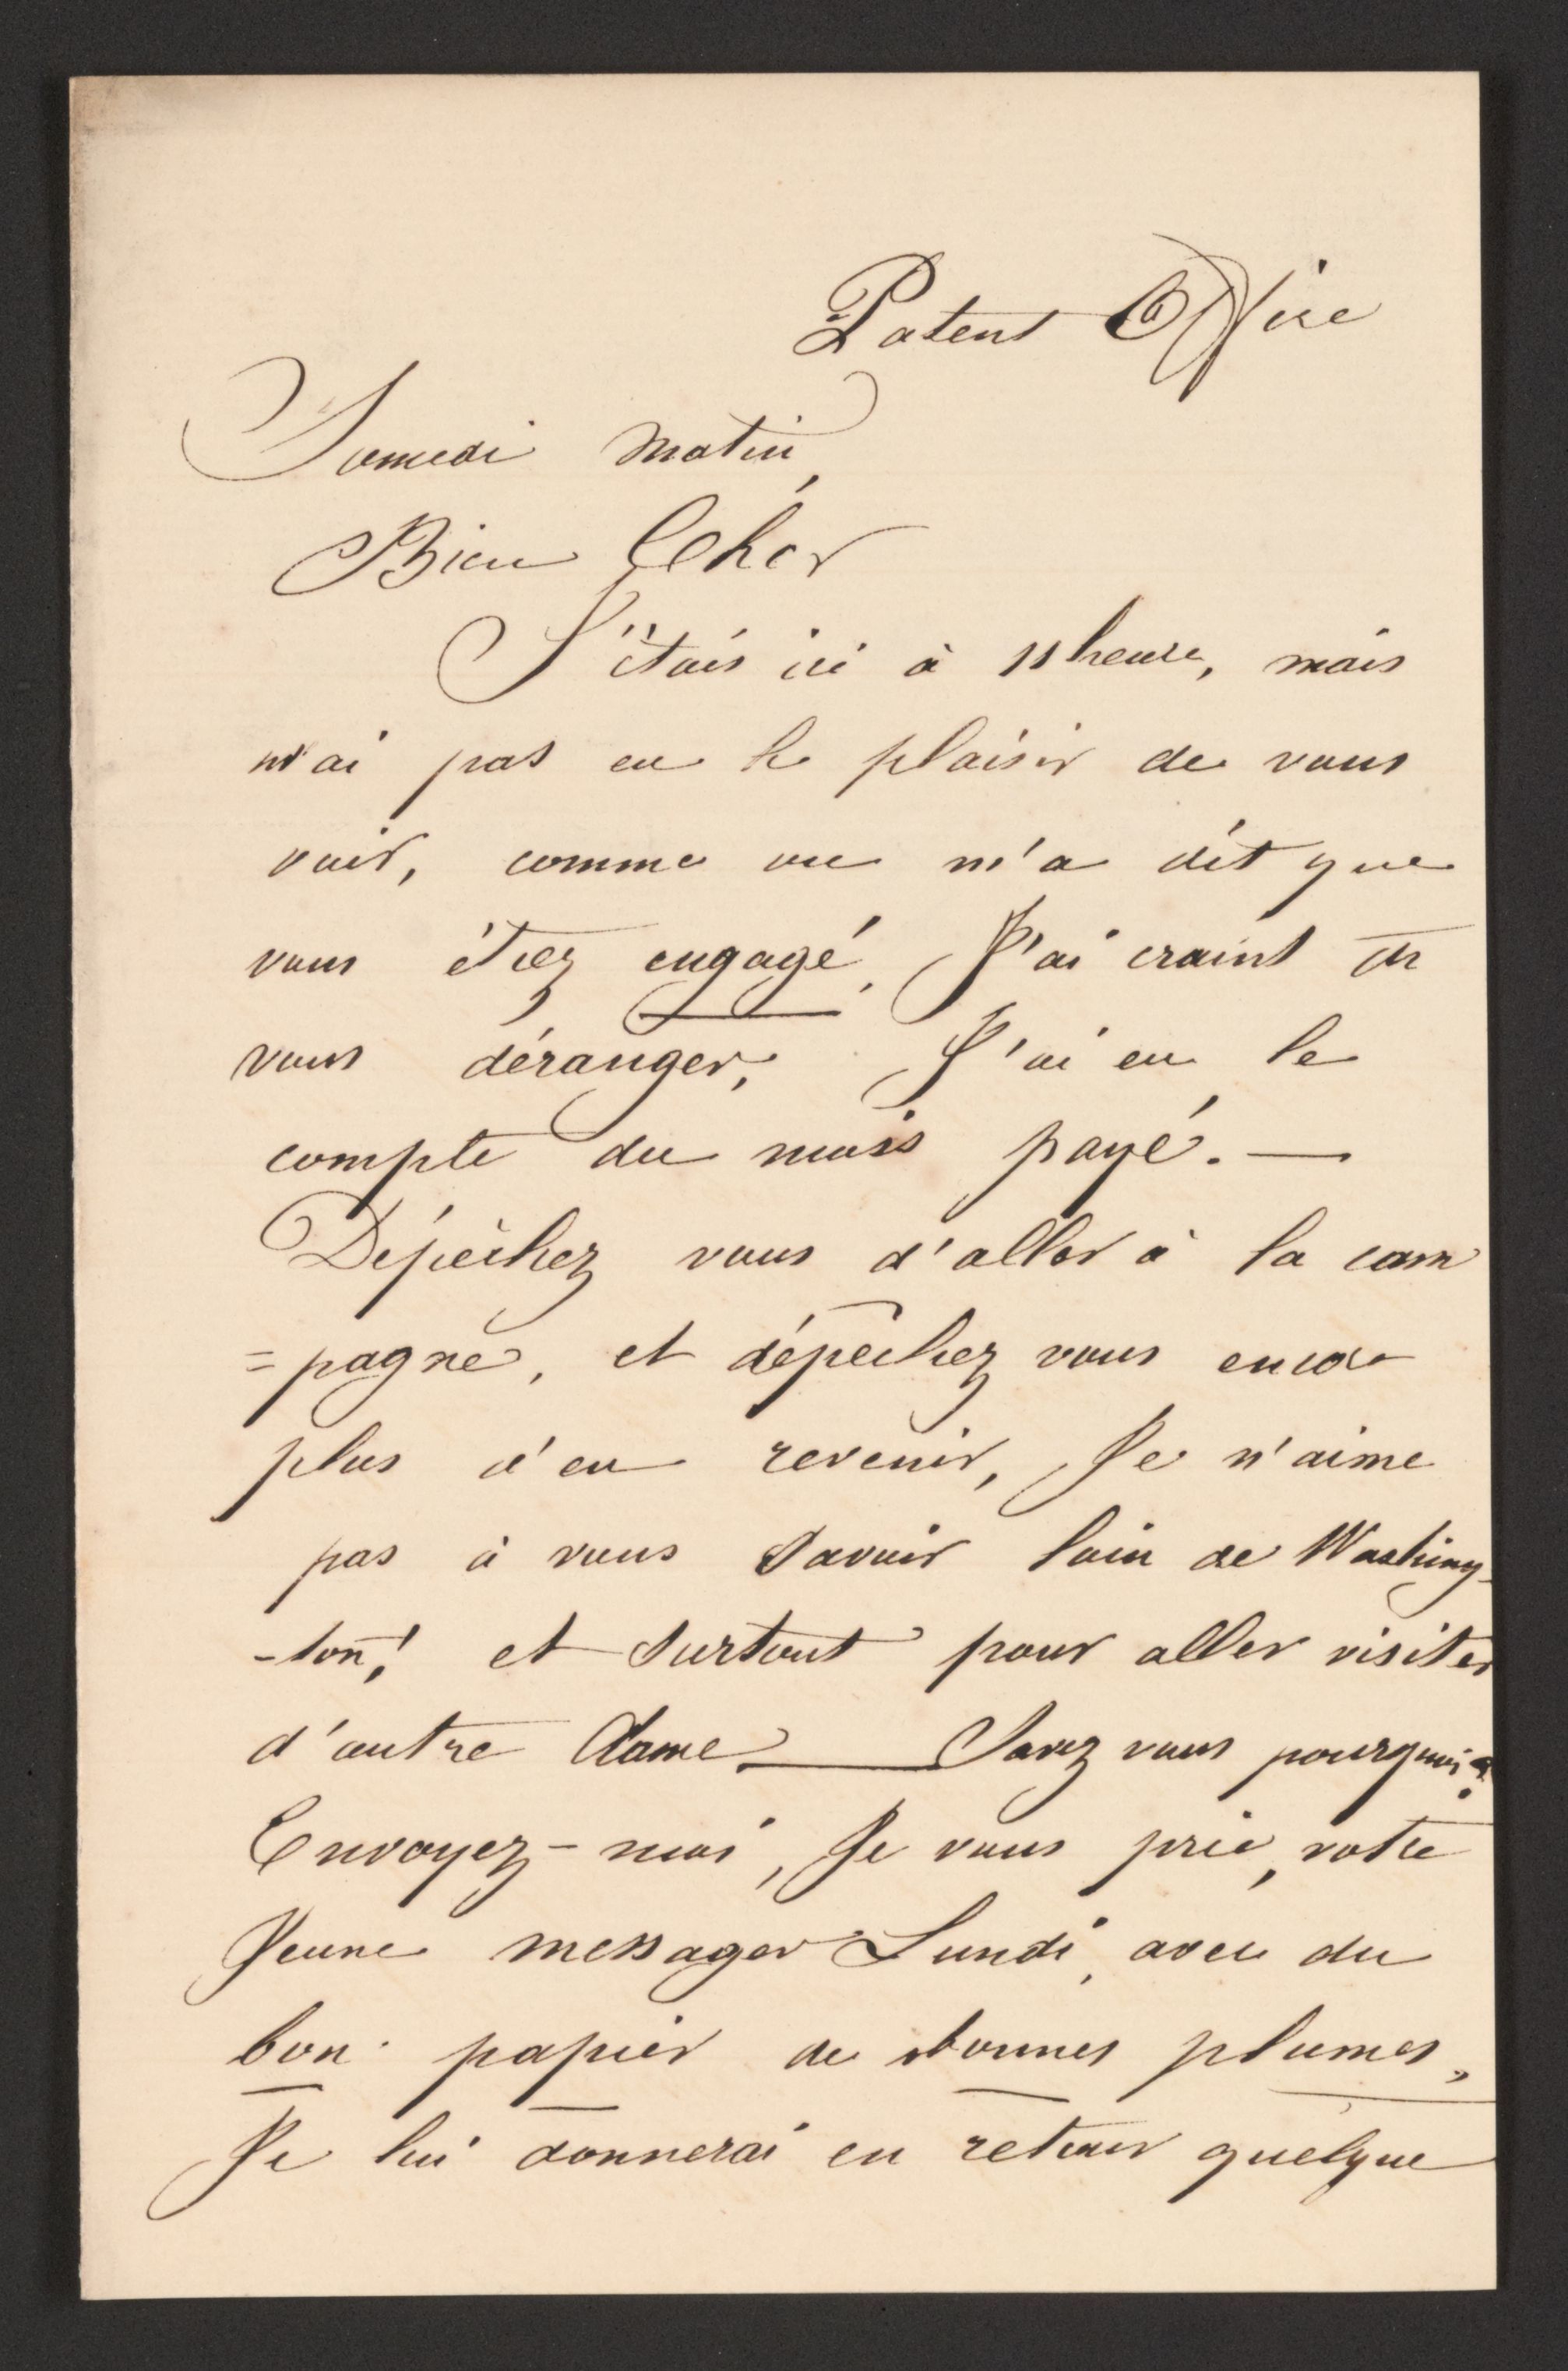 Patent Office
Samedi matin,
Bien Cher
J'étais ici à 11 heure, mais
n'ai pas eu le plaisir de vous
voir, comme on m'a dit que
vous étiez engagé, J'ai craint de
vous déranger, J'ai eu le
compte du mois payé. —
Dépêchez vous d'aller à la cam
=pagne, et dépêchez vous encore
plus d'en revenir, Je n'aime
pas à vous savoir loin de Washing-
-ton! et surtout pour aller visiter
d'autre Dame — Savez vous pourquoi?
Envoyez-moi, Je vous prie, votre
Jeune messager Lundi, avec du
bon papier de bonnes plumes,
Je lui donnerai en retour quelque